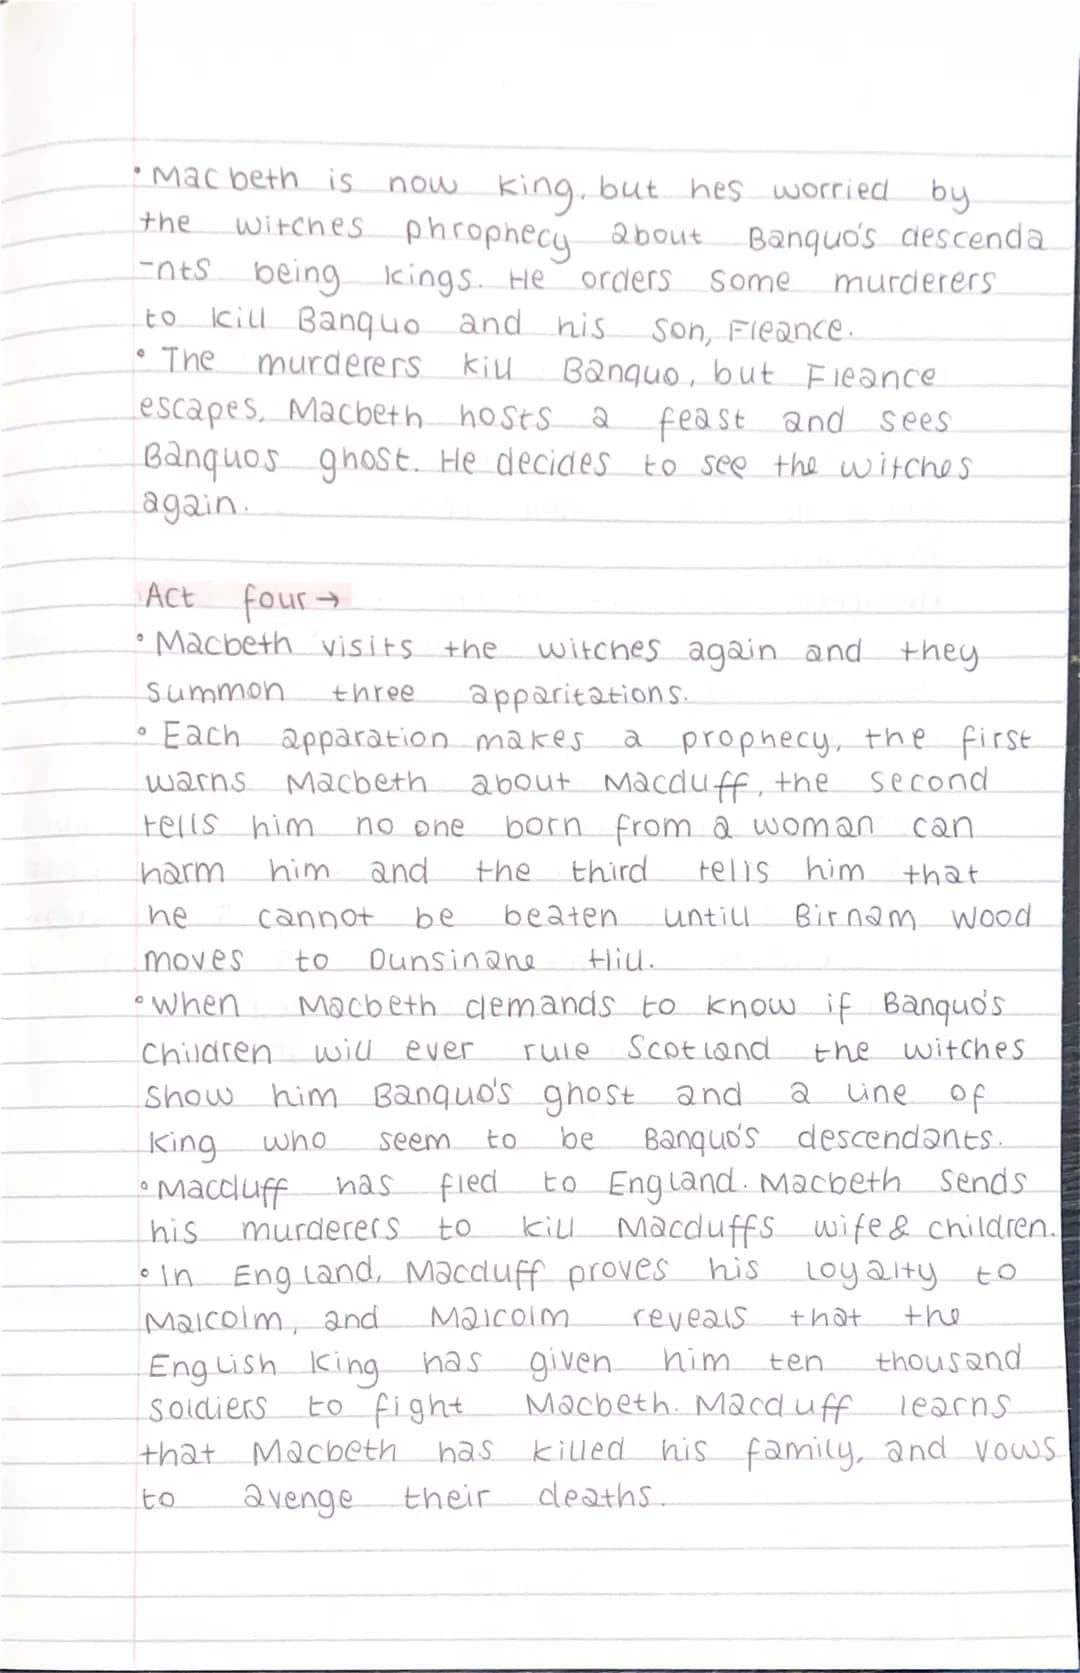 • Macbeth is now king, but hes worried by
the witches phrophecy about Banquo's descenda
-nts being kings. He orders some murderers
to kill Banquo and his son, Fleance.
• The murderers kill Banquo, but Fleance
escapes, Macbeth hosts a feast and sees
Banquos ghost. He decides to see the witches
again.
Act four →
• Macbeth visits the witches again and they
summon three apparitations.
• Each apparation makes a prophecy, the first
warns Macbeth about Macduff, the second
tells him no one born from a woman can
harm him and the third tells him that
he cannot be beaten untill Birnam Wood
moves to Dunsinane Hill.
• When Macbeth demands to know if Banquo's
children will ever rule Scotland the witches
show him Banquo's ghost and a line of
king who seem to be Banquo's descendants.
• Macduff has fled to England. Macbeth sends
his murderers to kill Macduffs wife & children.
• In England, Macduff proves his loyalty to
Malcolm, and Malcolm reveals that the
English king has given him ten thousand
soldiers to fight Macbeth. Macduff learns
that Macbeth has killed his family, and vows
to avenge their deaths.